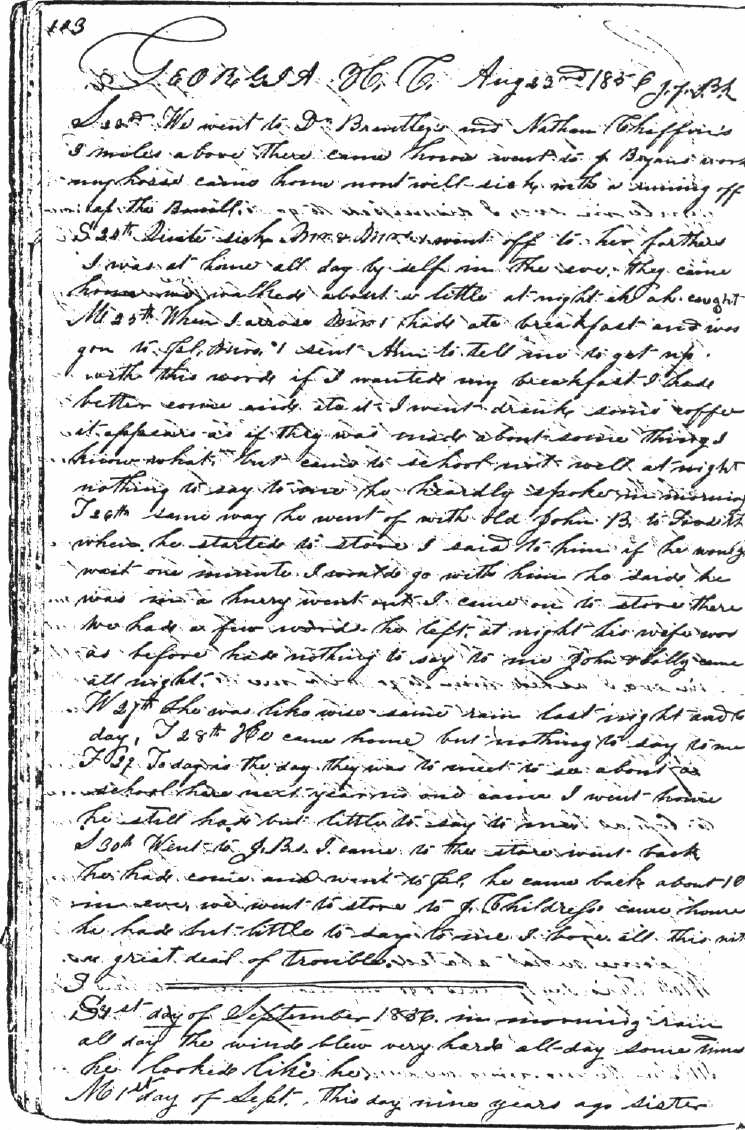 113
GEORGIA H. C. Aug 23rd 1856 J. J. B.
S 23rd We went to Dr Brantleys and Nathan Chiffins
3 miles above there came home went to J Bryans
my horse came home nont well sick with a runing off
of the Bowill.
S 24th Quite sick Mr & Mrs 1 went off to her farthers
I was at home all day by self in the eve. they came
home we walked about a little at night ah ah caught
M 25th When I arrose Mr 1 had ate breakfast and was
gon to Jsl, Mrs. 1 sent Him to tell me to get up.
with this words if I wanted my breakfast I had
better come and ate it I went drank some coffee
it appears as if they was made about some thing I
know what, but came to school not well at night
nothing to say to me he heardly spoke in morning
T 26th same way he went of with old John B. to
when he started to store I said to him if he would
wait one minute I would go with him he said he
was in a hurry went out I came on to store there
We had a few words he left, at night his wife was
as before had nothing to say to me John & Sally came
all night
W 27th She was likewise same rain last night and to
day, T 28th He came home but nothing to say to me
F 29. Today is the day they was to meet to se about a
school here next year no one came I went home
he still had but little to say to me
S 30th Went to J. Bs. I came to the store went back
he had come and went to Jsl, he came back about 10
in eve, we went to store to J. Childress came home
he had but little to say to me I hove all this not
a griat deal of trouble.
S
S 31st day of September 1856. in morning rain
all day the wind blew very hard all day some times
he looked like he
M 1st day of Sept. This day nine years ago sister